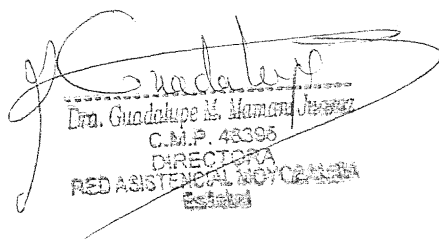 Guadalupe
Dra. Guadalupe M. Mamani
C.M.P. 48395
DIRECTORA
RED ASISTENCIAL MOYOBAMBA
EsSalud